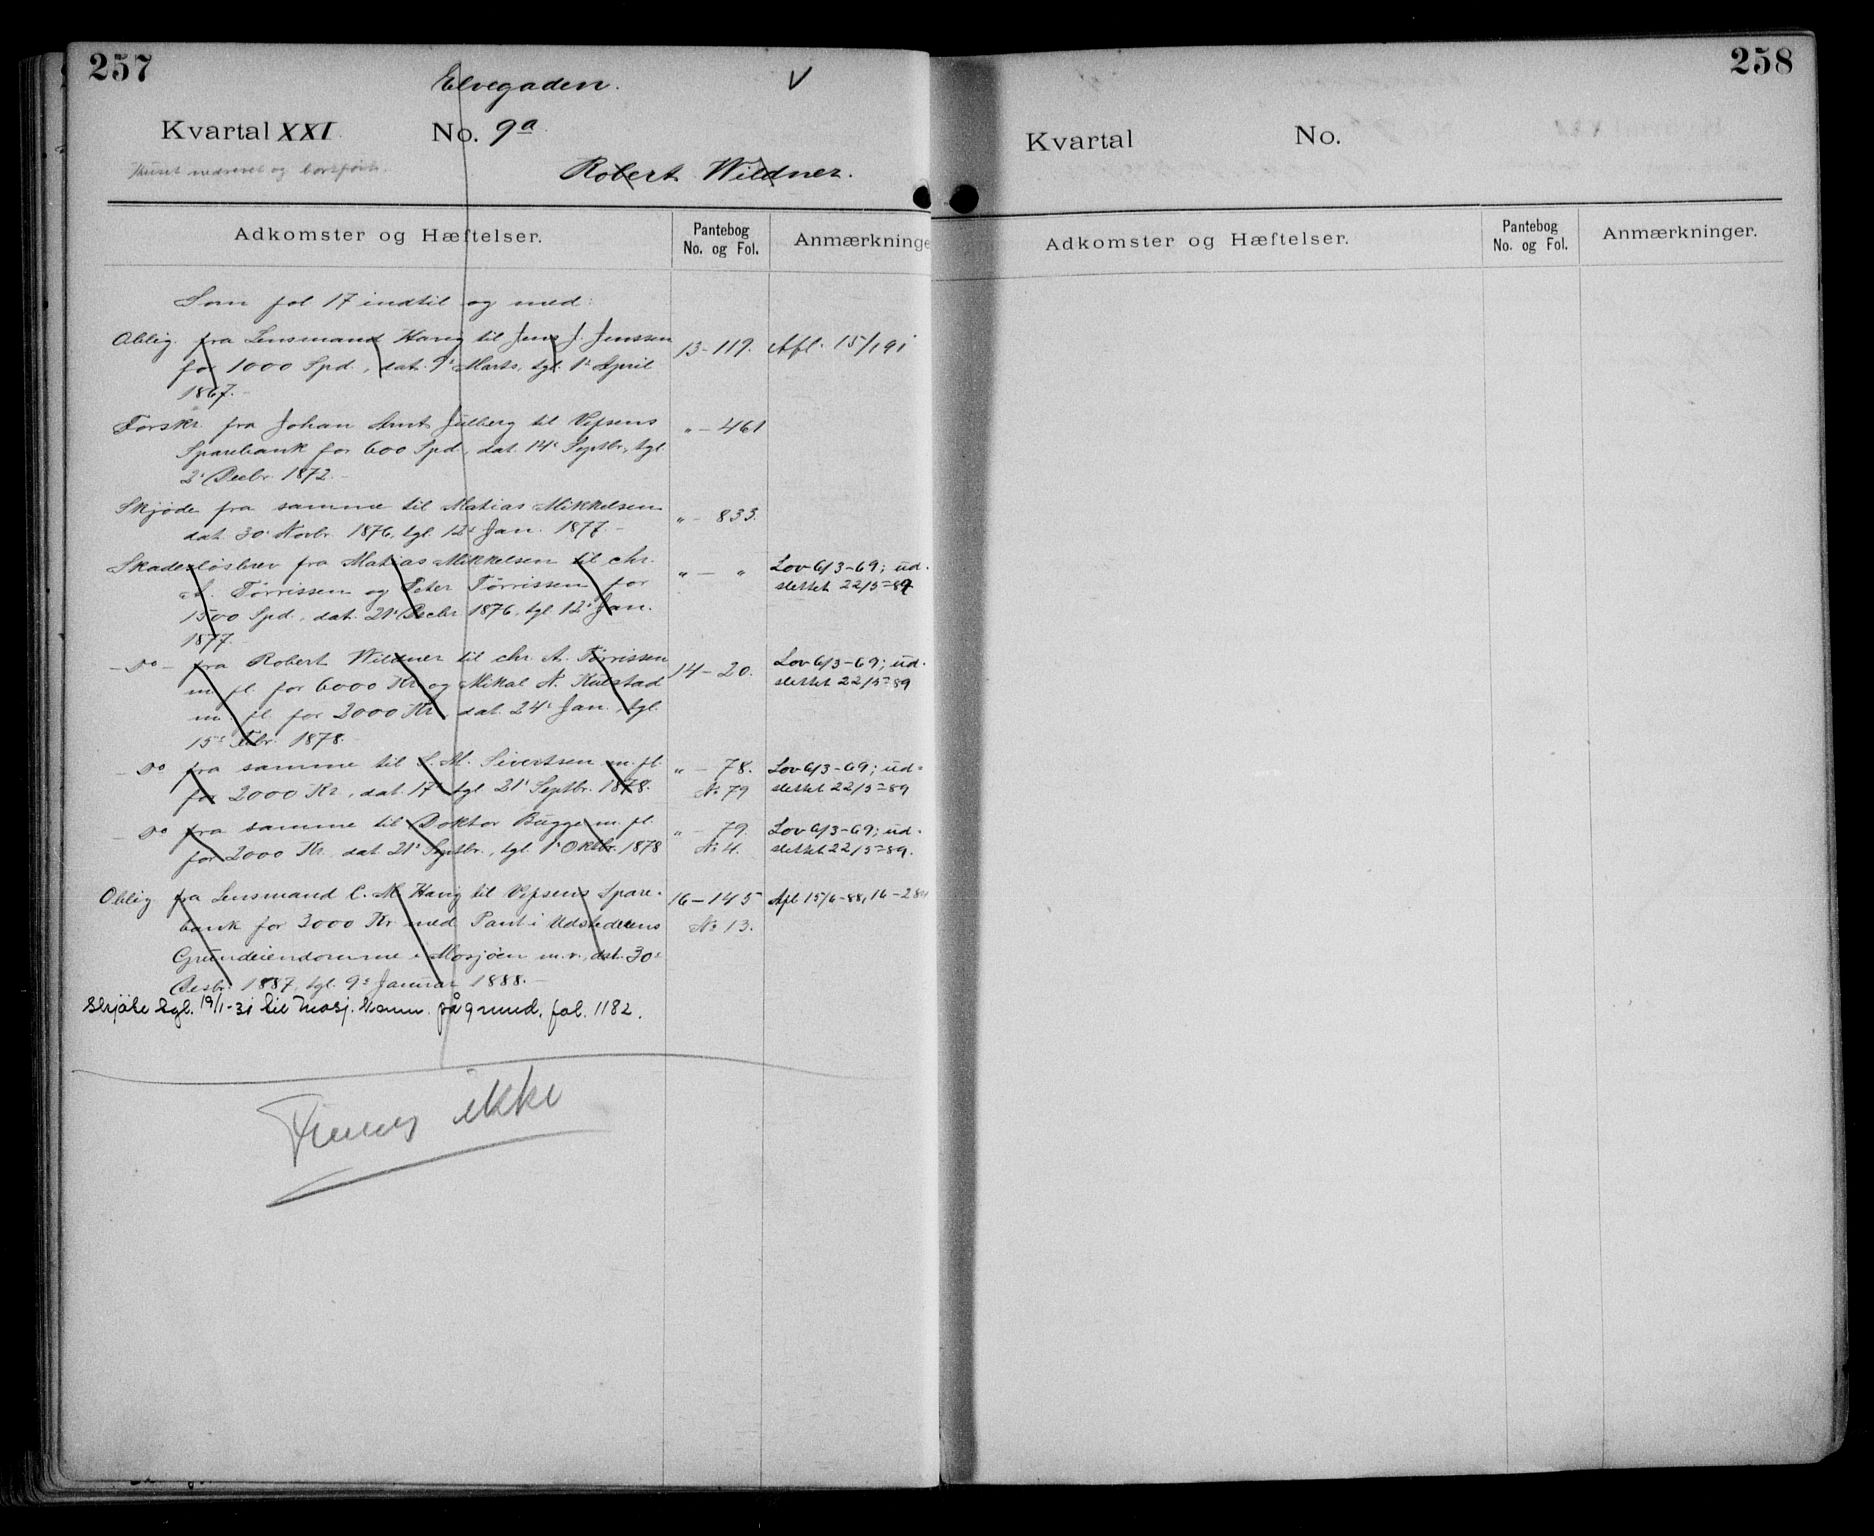 257
Elvegaden. V
Kvartal XXI No. 9a
Huset nedrevet og bortført.
Robert Wildner.
Adkomster og Hæftelser. Pantebog No. og Fol. Anmærkninge
Som fol 17 indtil og med:
Oblig. fra Lensmand Havig til Jens J. Jenssen 13-119. Afl. 15/1 91
for 1000 Spd., dat. 9' Marts, tgl. 1' April
1867.-
Forskr. fra Johan Arnt Julberg til Vefsens "-461
Sparebank for 600 Spd., dat. 14' Septbr., tgl.
2' Decbr. 1872.-
Skjøde fra samme til Matias Mikkelsen "-833.
dat. 30' Novbr. 1876, tgl. 12' Jan. 1877.-
Skadesløsbrev fra Matias Mikkelsen til Chr. "-" Lov 6/3-69; ud-
A. Tørrissen og Peter Tørrissen for slettet 22/5-89
1500 Spd., dat. 21' Decbr 1876, tgl. 12' Jan.
1877.-
-Do- fra Robert Wildner til Chr. A. Tørrissen 14-20. Lov 6/3-69; ud-
m. fl. for 6000 Kr og Mikal N. Kulstad slettet 22/5-89
m. fl. for 2000 Kr., dat. 24' Jan., tgl.
15' Febr. 1878.
-Do fra samme til S. M. Sivertsen m. fl. "-78. Lov 6/3-69; ud-
for 2000 Kr., dat. 17' tgl. 21' Septbr. 1878. No 79 slettet 22/5-89
-Do fra samme til Doktor Bugge m. fl. "-79. Lov 6/3-69; ud-
for 2000 Kr. dat. 21' Septbr., tgl. 1' Oktbr. 1878 No 4. slettet 22/5-89.
Oblig fra Lensmand C. M. Havig til Vefsens Spare- 16-145 Afl 15/6-88, 16-28
bank for 2000 Kr med Pant i Udstederens No 13.
Grundeiendomme i Mosjøen m. v., dat. 30'
Desbr. 1887, tgl. 9' Januar 1888.-
Skjøte tgl. 19/1-31 til Mosj. komm. på grund, fol. 1182.
Finnes ikke
258
Kvartal No.
Adkomster og Hæftelser. Pantebog No. og Fol. Anmærkninger.